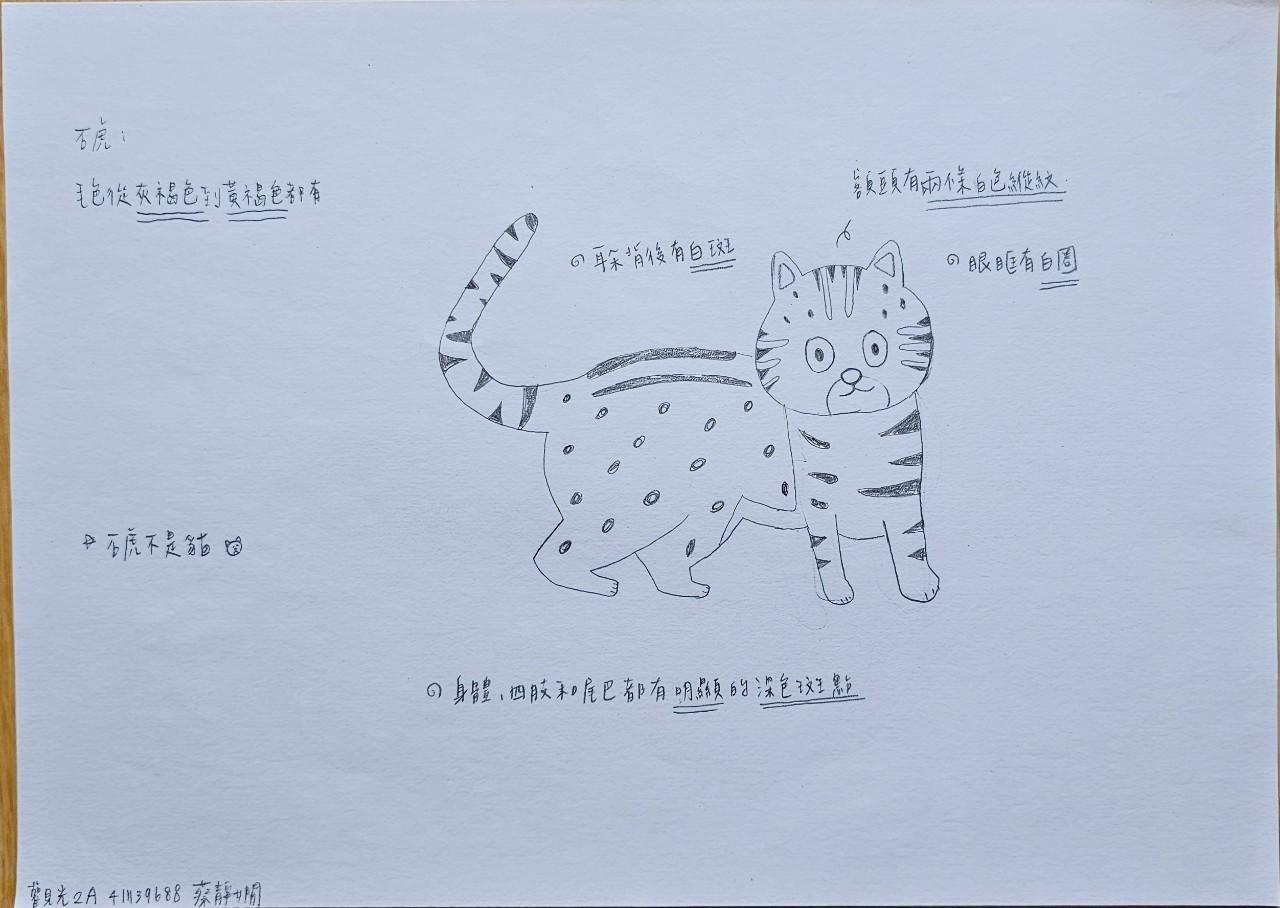 石虎：
毛色從灰褐色到黃褐色都有
額頭有兩條白色縱紋
耳朵背後有白斑
眼眶有白圈
石虎不是貓
身體、四肢和尾巴都有明顯的深色斑點
觀光2A 41139688 蔡靜嫻